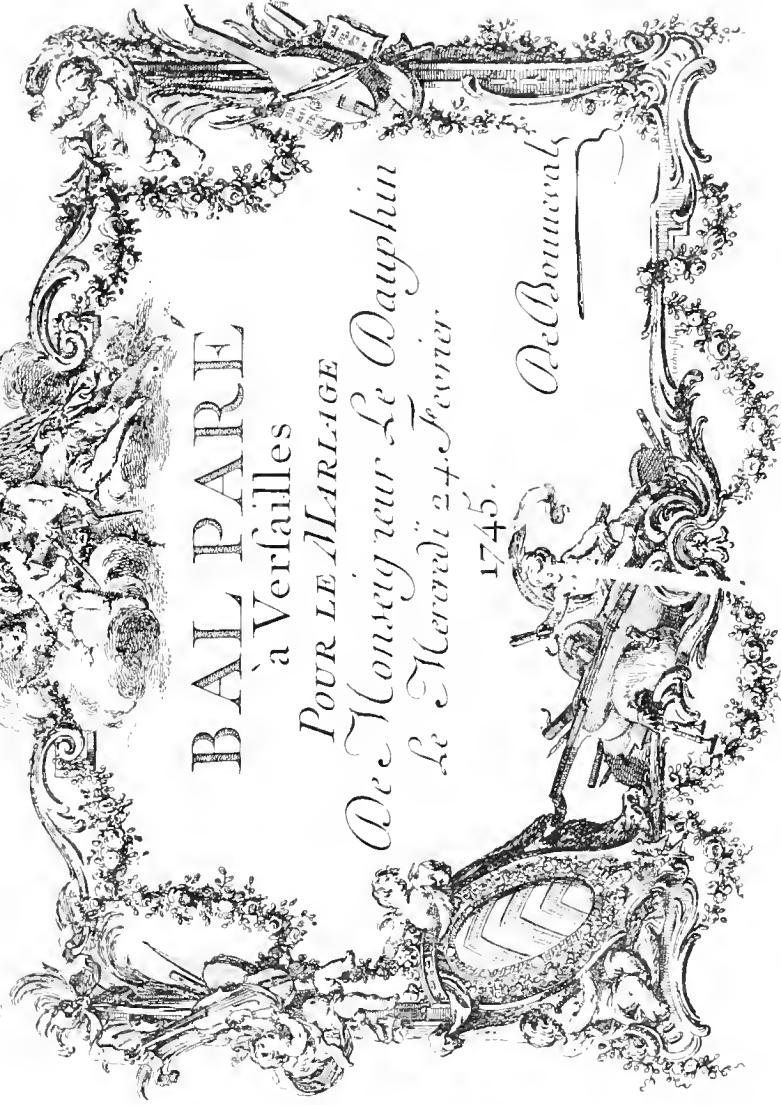 BAL PARÉ
à Verſailles
POUR LE MARIAGE
De Monseigneur Le Dauphin
Le Mercredi 24 Fevrier
1745.
De Bonneval